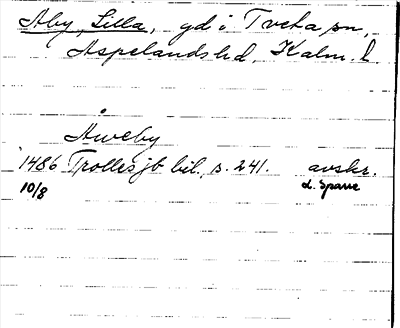 Åby, Lilla, gd i Tveta sn,
Aspelands hd, Kalm. l.
Åweby
1486 Trolles jb bil., s. 241. avskr.
10/8 L. Sparre